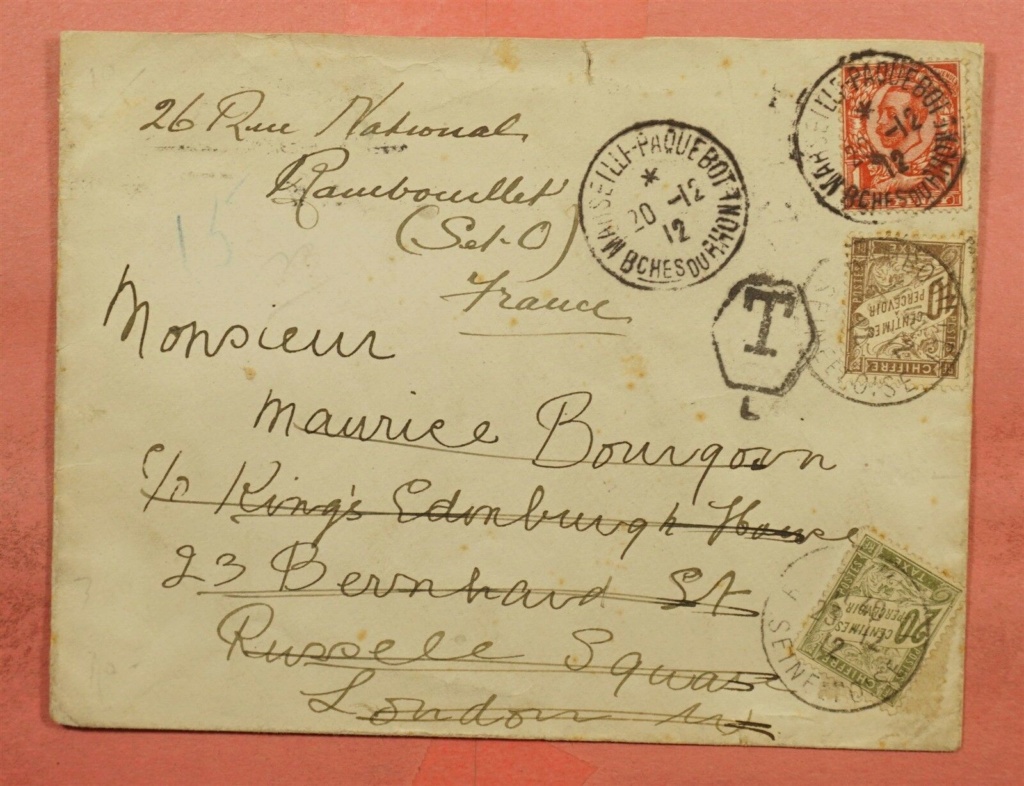 26 Rue National
Rambouillet
(Set-O)
France
Monsieur
Maurice Bourgoin
c/o King's Edinburgh House
23 Bernhard St
Russele Square
London
MARSEILLE-PAQUEBOT
*
20 -12
12
BCHES DU RHONE
MARSEILLE-PAQUEBOT
*
-12
12
BCHES DU RHONE
T
TAXE
POSTES
10
CENTIMES
A PERCEVOIR
CHIFFRE
OISE
TAXE
POSTES
20
CENTIMES
A PERCEVOIR
CHIFFRE
23
12
12
SEINE-ET-OISE
15